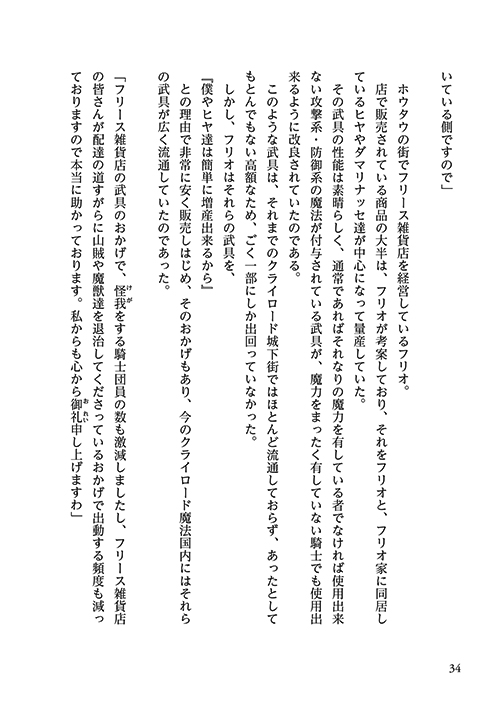 いている側ですので」
ホウタウの街でフリース雑貨店を経営しているフリオ。
店で販売されている商品の大半は、フリオが考案しており、それをフリオと、フリオ家に同居し
ているヒヤやダマリナッセ達が中心になって量産していた。
その武具の性能は素晴らしく、通常であればそれなりの魔力を有している者でなければ使用出来
ない攻撃系・防御系の魔法が付与されている武具が、魔力をまったく有していない騎士でも使用出
来るように改良されていたのである。
このような武具は、それまでのクライロード城下街ではほとんど流通しておらず、あったとして
もとんでもない高額なため、ごく一部にしか出回っていなかった。
しかし、フリオはそれらの武具を、
『僕やヒヤ達は簡単に増産出来るから』
との理由で非常に安く販売しはじめ、そのおかげもあり、今のクライロード魔法国内にはそれら
の武具が広く流通していたのであった。
「フリース雑貨店の武具のおかげで、怪我をする騎士団員の数も激減しましたし、フリース雑貨店
の皆さんが配達の道すがらに山賊や魔獣達を退治してくださっているおかげで出動する頻度も減っ
ておりますので本当に助かっております。私からも心から御礼申し上げますわ」
けが
おれい
34